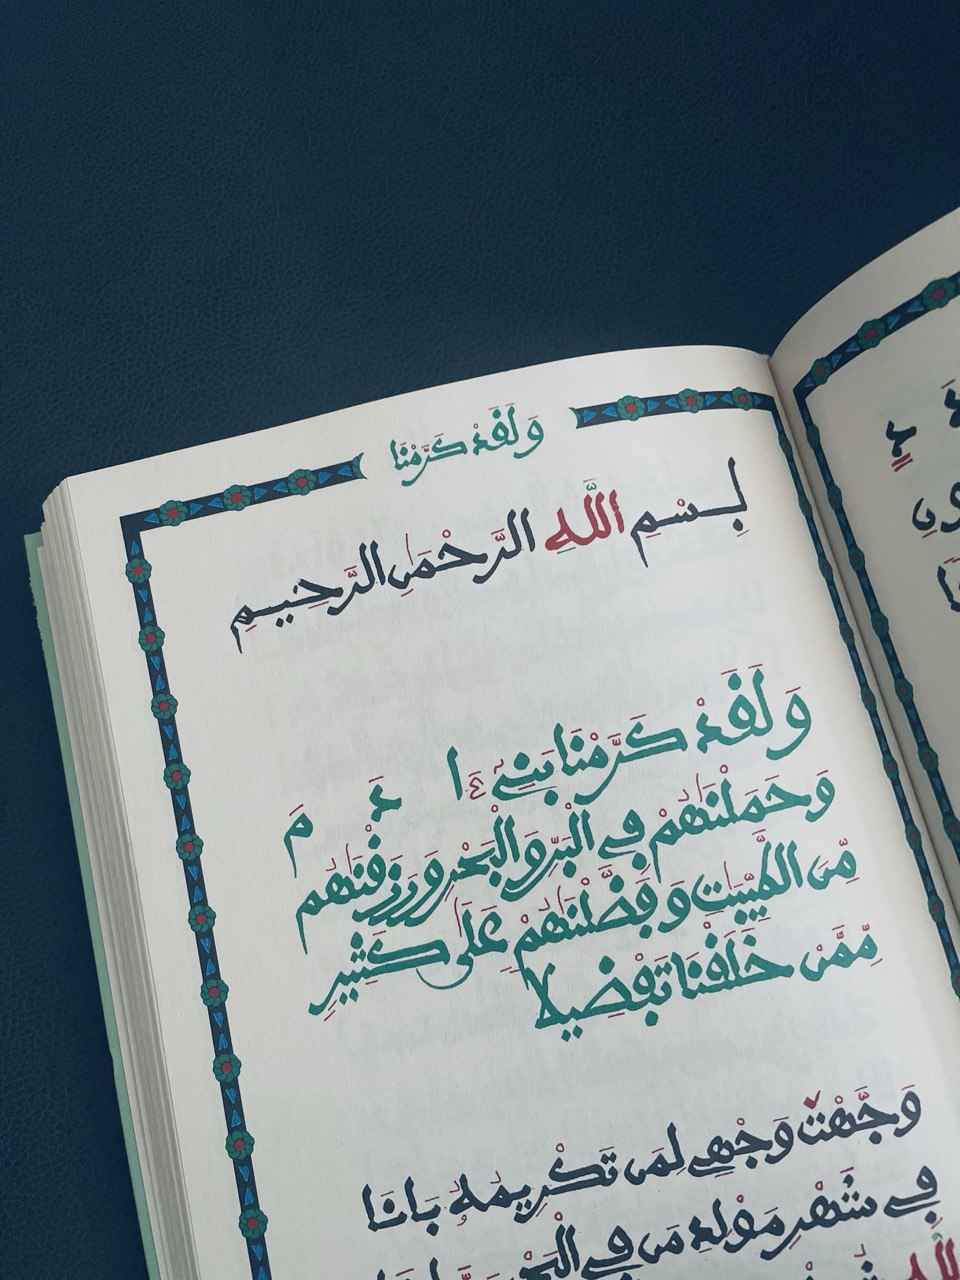 وَلَقَدْ كَرَّمْنَا
بِسْمِ اللَّهِ الرَّحْمَٰنِ الرَّحِيمِ
وَلَقَدْ كَرَّمْنَا بَنِي ءَادَمَ
وَحَمَلْنَٰهُمْ فِي الْبَرِّ وَالْبَحْرِ وَرَزَقْنَٰهُم
مِّنَ الطَّيِّبَٰتِ وَفَضَّلْنَٰهُمْ عَلَىٰ كَثِيرٍ
مِّمَّنْ خَلَقْنَا تَفْضِيلًا
وَجَّهْتُ وَجْهِي لِمَن تَكْرِيمُهُ بَانَا
فِي شَهْرِ مَوْلِدِ مَن فِي